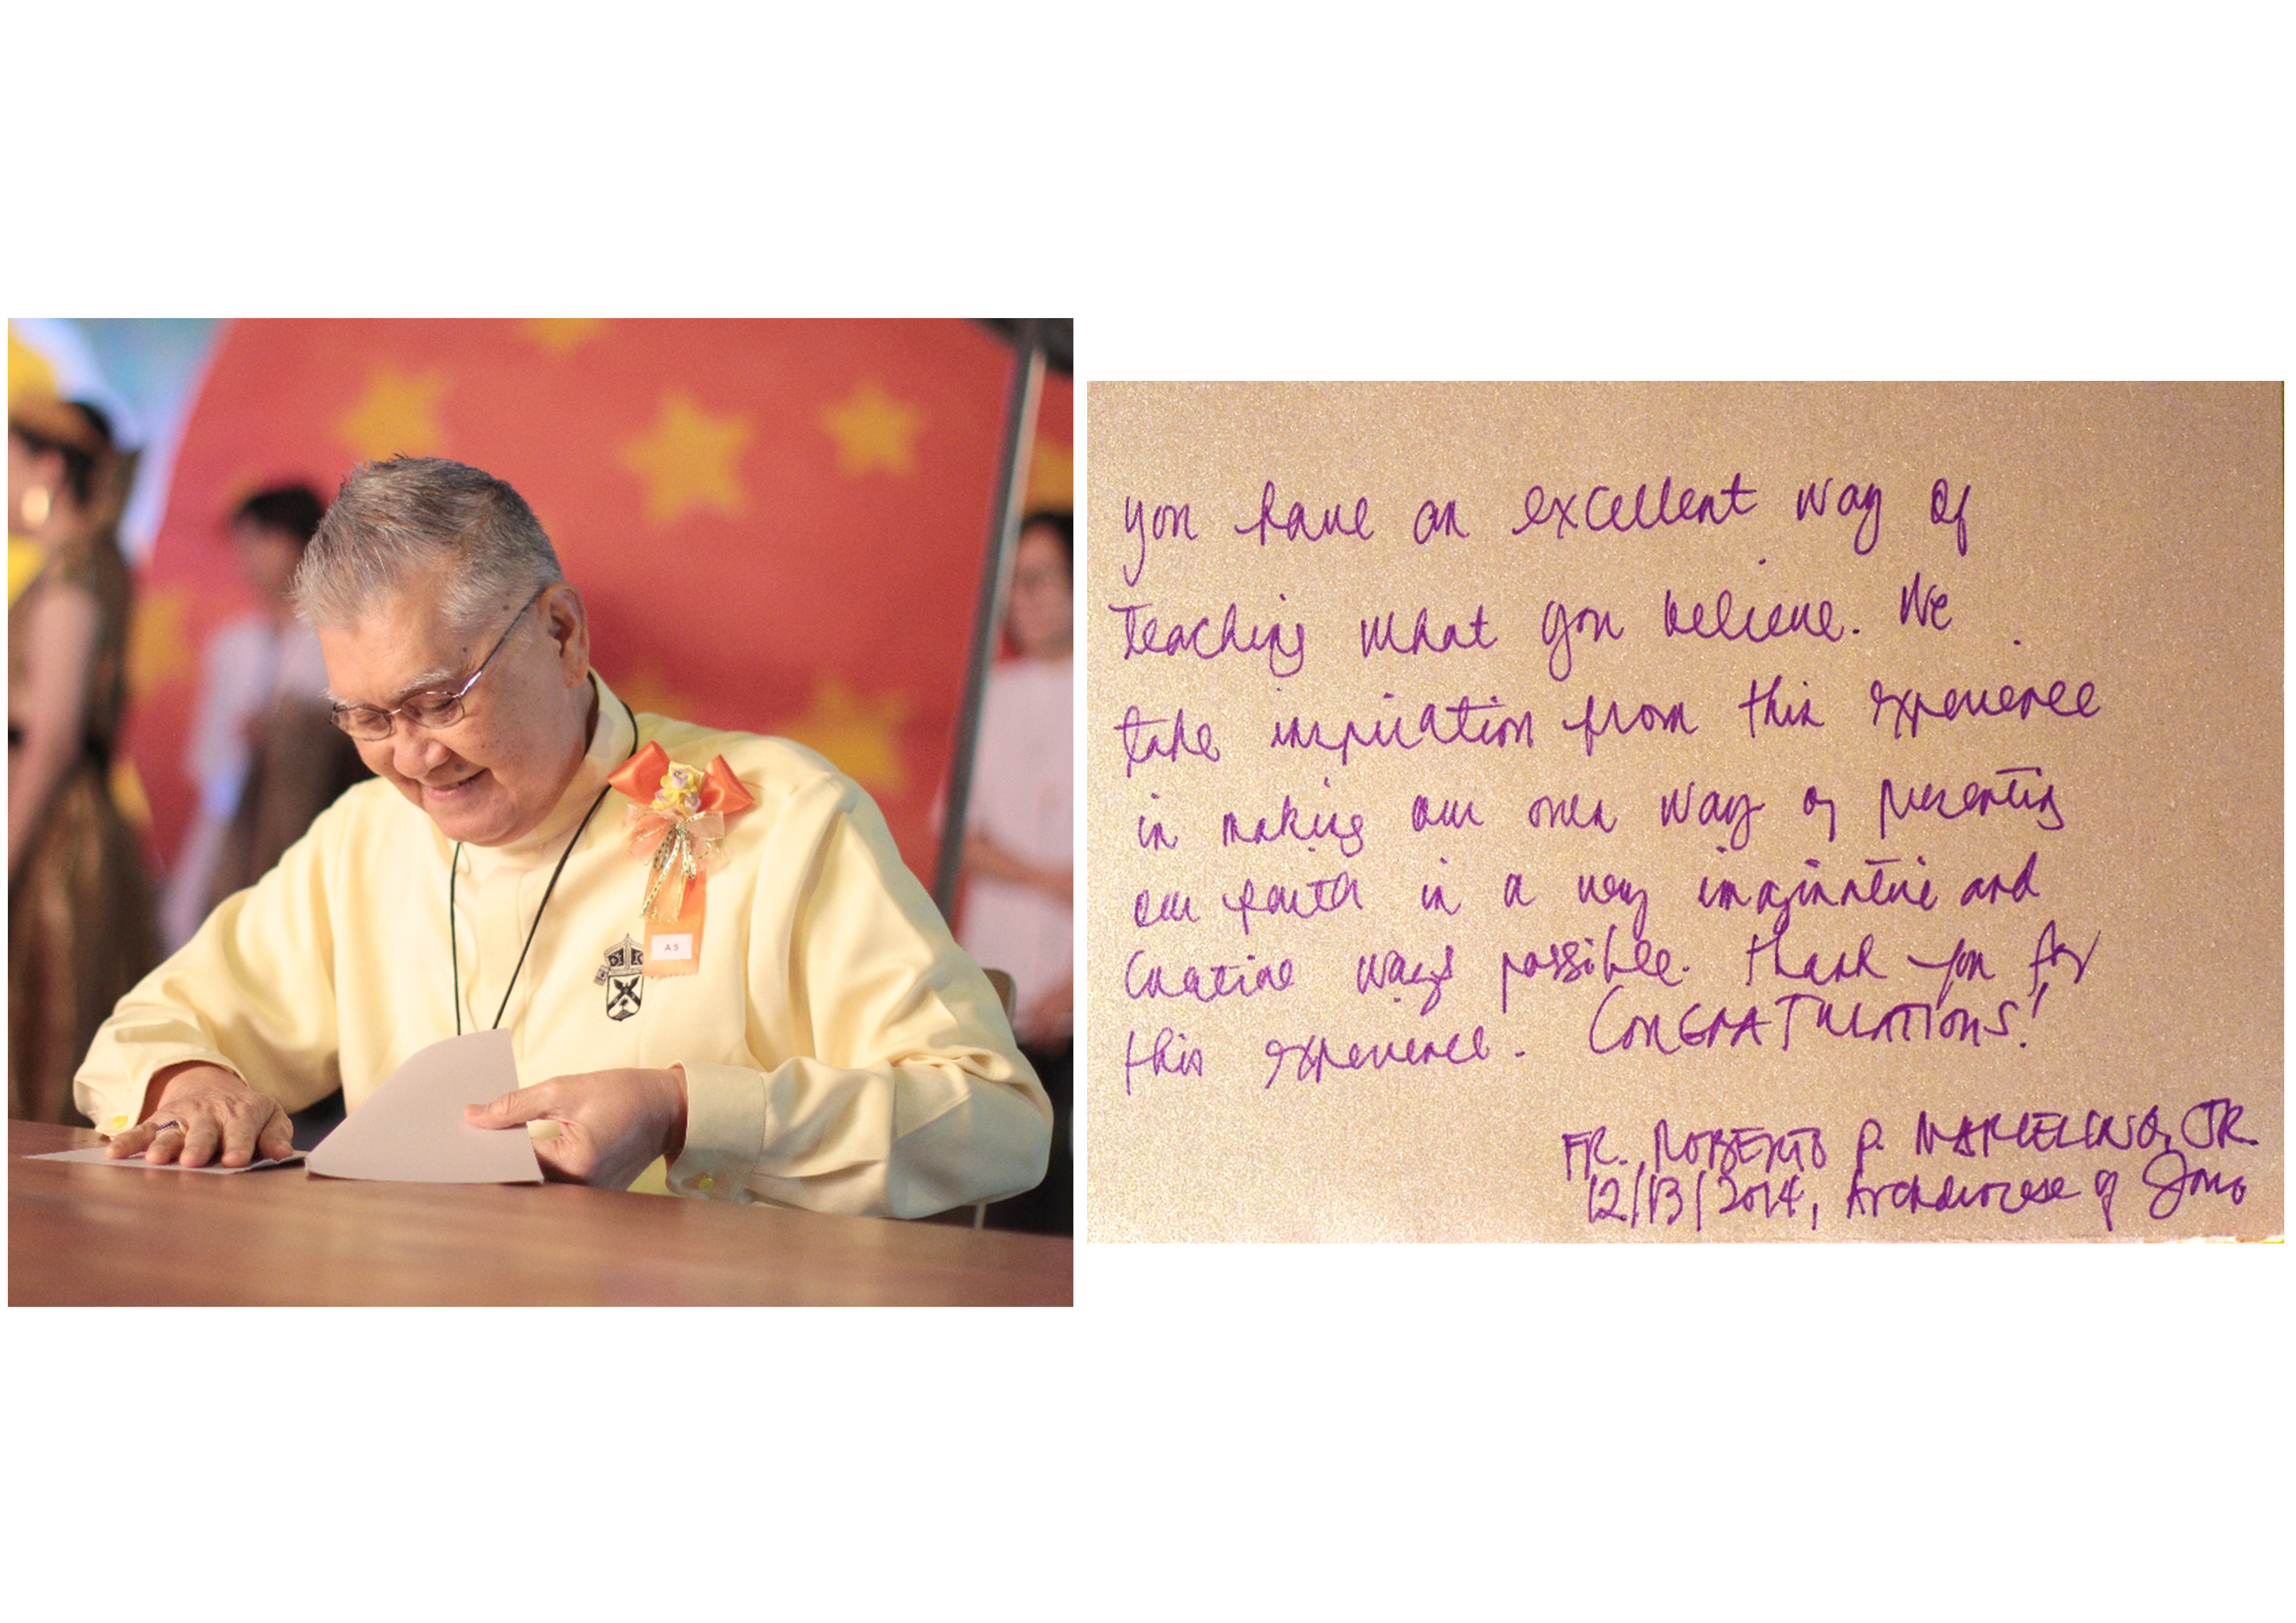 A 5
you have an excellent way of
teaching what you believe. We
take inspiration from this experience
in making our own way of presenting
our faith in a very imaginative and
creative ways possible. thank you for
this experience. CONGRATULATIONS!
FR. ROBERTO P. MARCELINO, JR.
12/13/2014, Archdiocese of Jaro